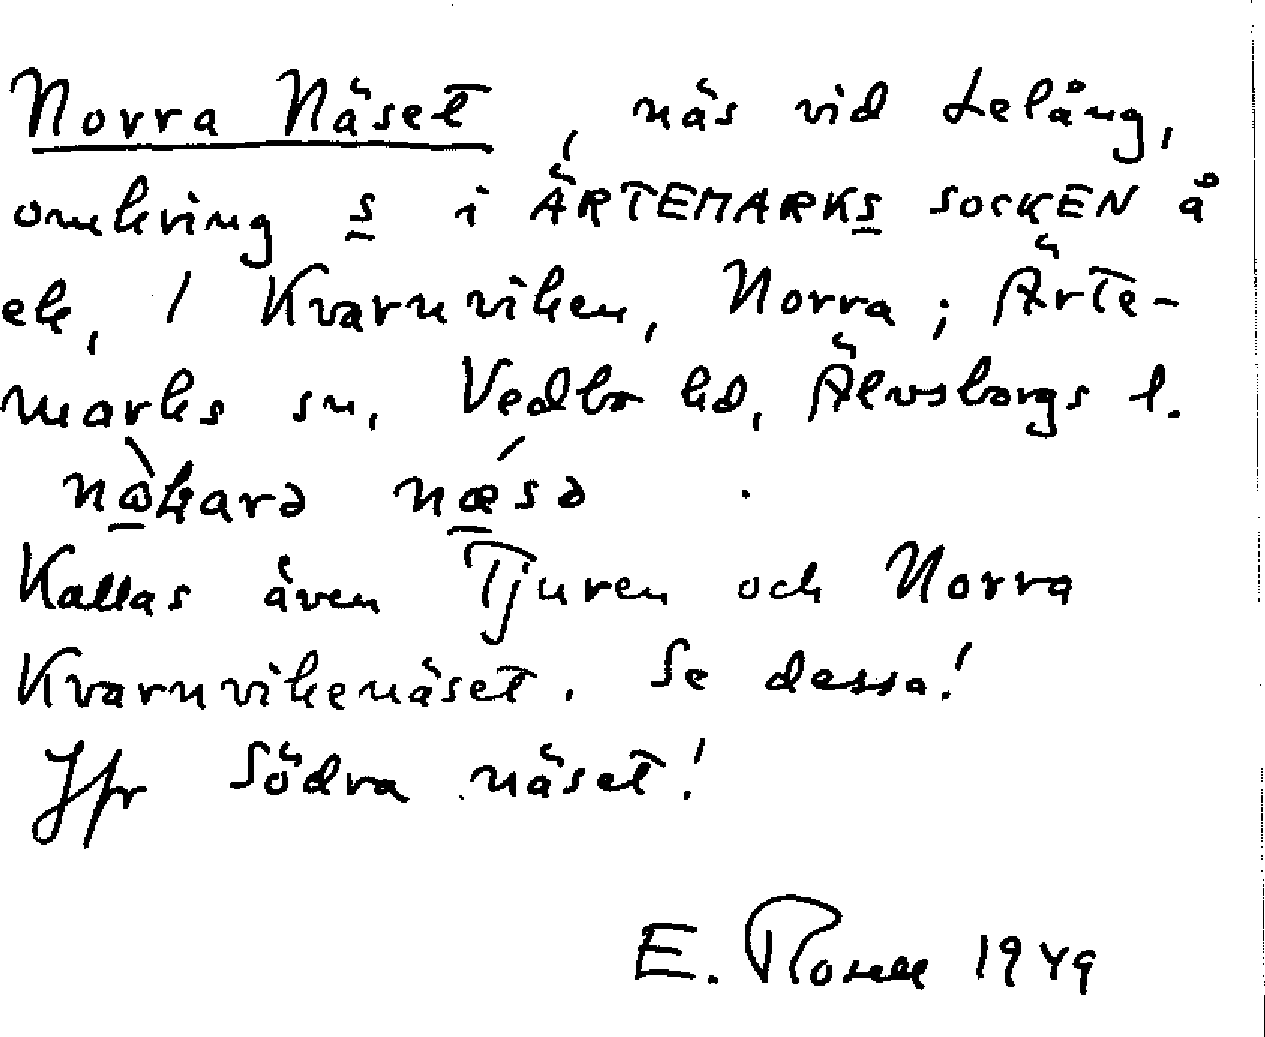 Norra Näset, näs vid Lelång,
omkring s i ÄRTEMARKS SOCKEN å
ek, / Kvarnviken, Norra; Ärte-
marks sn, Vedbo hd, Älvsborgs l.
næ̀sə
Kallas även Tjuren och Norra
Kvarnvikenäset. Se dessa!
Jfr Södra näset!
E. 1949